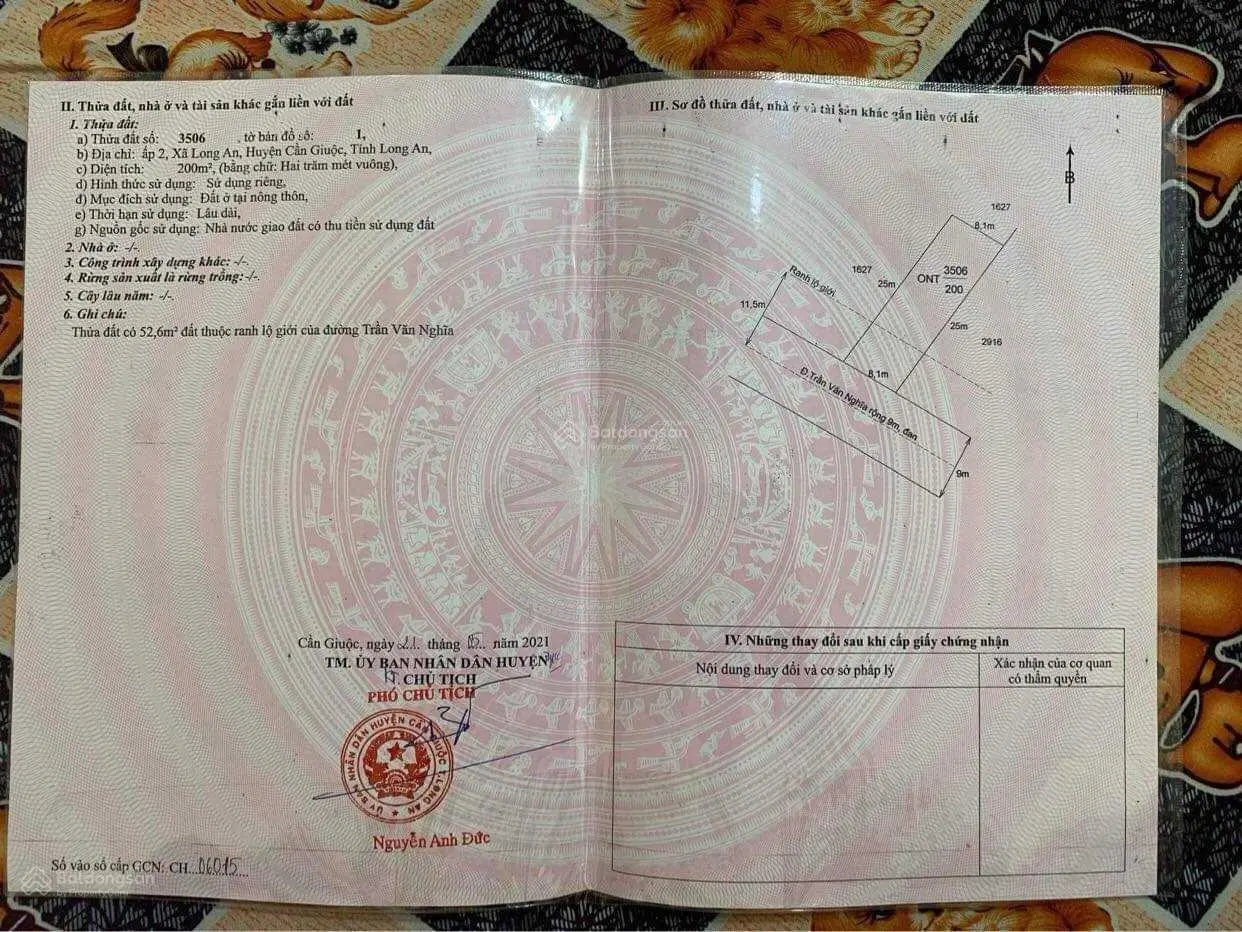 II. Thửa đất, nhà ở và tài sản khác gắn liền với đất
1. Thửa đất:
a) Thửa đất số: 3506 , tờ bản đồ số: 1,
b) Địa chỉ: ấp 2, Xã Long An, Huyện Cần Giuộc, Tỉnh Long An,
c) Diện tích: 200m², (bằng chữ: Hai trăm mét vuông),
d) Hình thức sử dụng: Sử dụng riêng,
đ) Mục đích sử dụng: Đất ở tại nông thôn,
e) Thời hạn sử dụng: Lâu dài,
g) Nguồn gốc sử dụng: Nhà nước giao đất có thu tiền sử dụng đất
2. Nhà ở: -/-.
3. Công trình xây dựng khác: -/-.
4. Rừng sản xuất là rừng trồng:-/-.
5. Cây lâu năm: -/-.
6. Ghi chú:
Thửa đất có 52,6m² đất thuộc ranh lộ giới của đường Trần Văn Nghĩa
Cần Giuộc, ngày 21 tháng năm 2021
TM. ỦY BAN NHÂN DÂN HUYỆN
KT. CHỦ TỊCH
PHÓ CHỦ TỊCH
ỦY BAN NHÂN DÂN HUYỆN CẦN GIUỘC T.LONG AN
Nguyễn Anh Đức
Số vào sổ cấp GCN: CH...06015...
Batdongsan
III. Sơ đồ thửa đất, nhà ở và tài sản khác gắn liền với đất
B
1627
8,1m
1627
25m
ONT 3506
200
Ranh lộ giới
11,5m
25m
2916
8,1m
Đ.Trần Văn Nghĩa rộng 9m, đan
9m
Batdongsan
IV. Những thay đổi sau khi cấp giấy chứng nhận
Nội dung thay đổi và cơ sở pháp lý
Xác nhận của cơ quan
có thẩm quyền